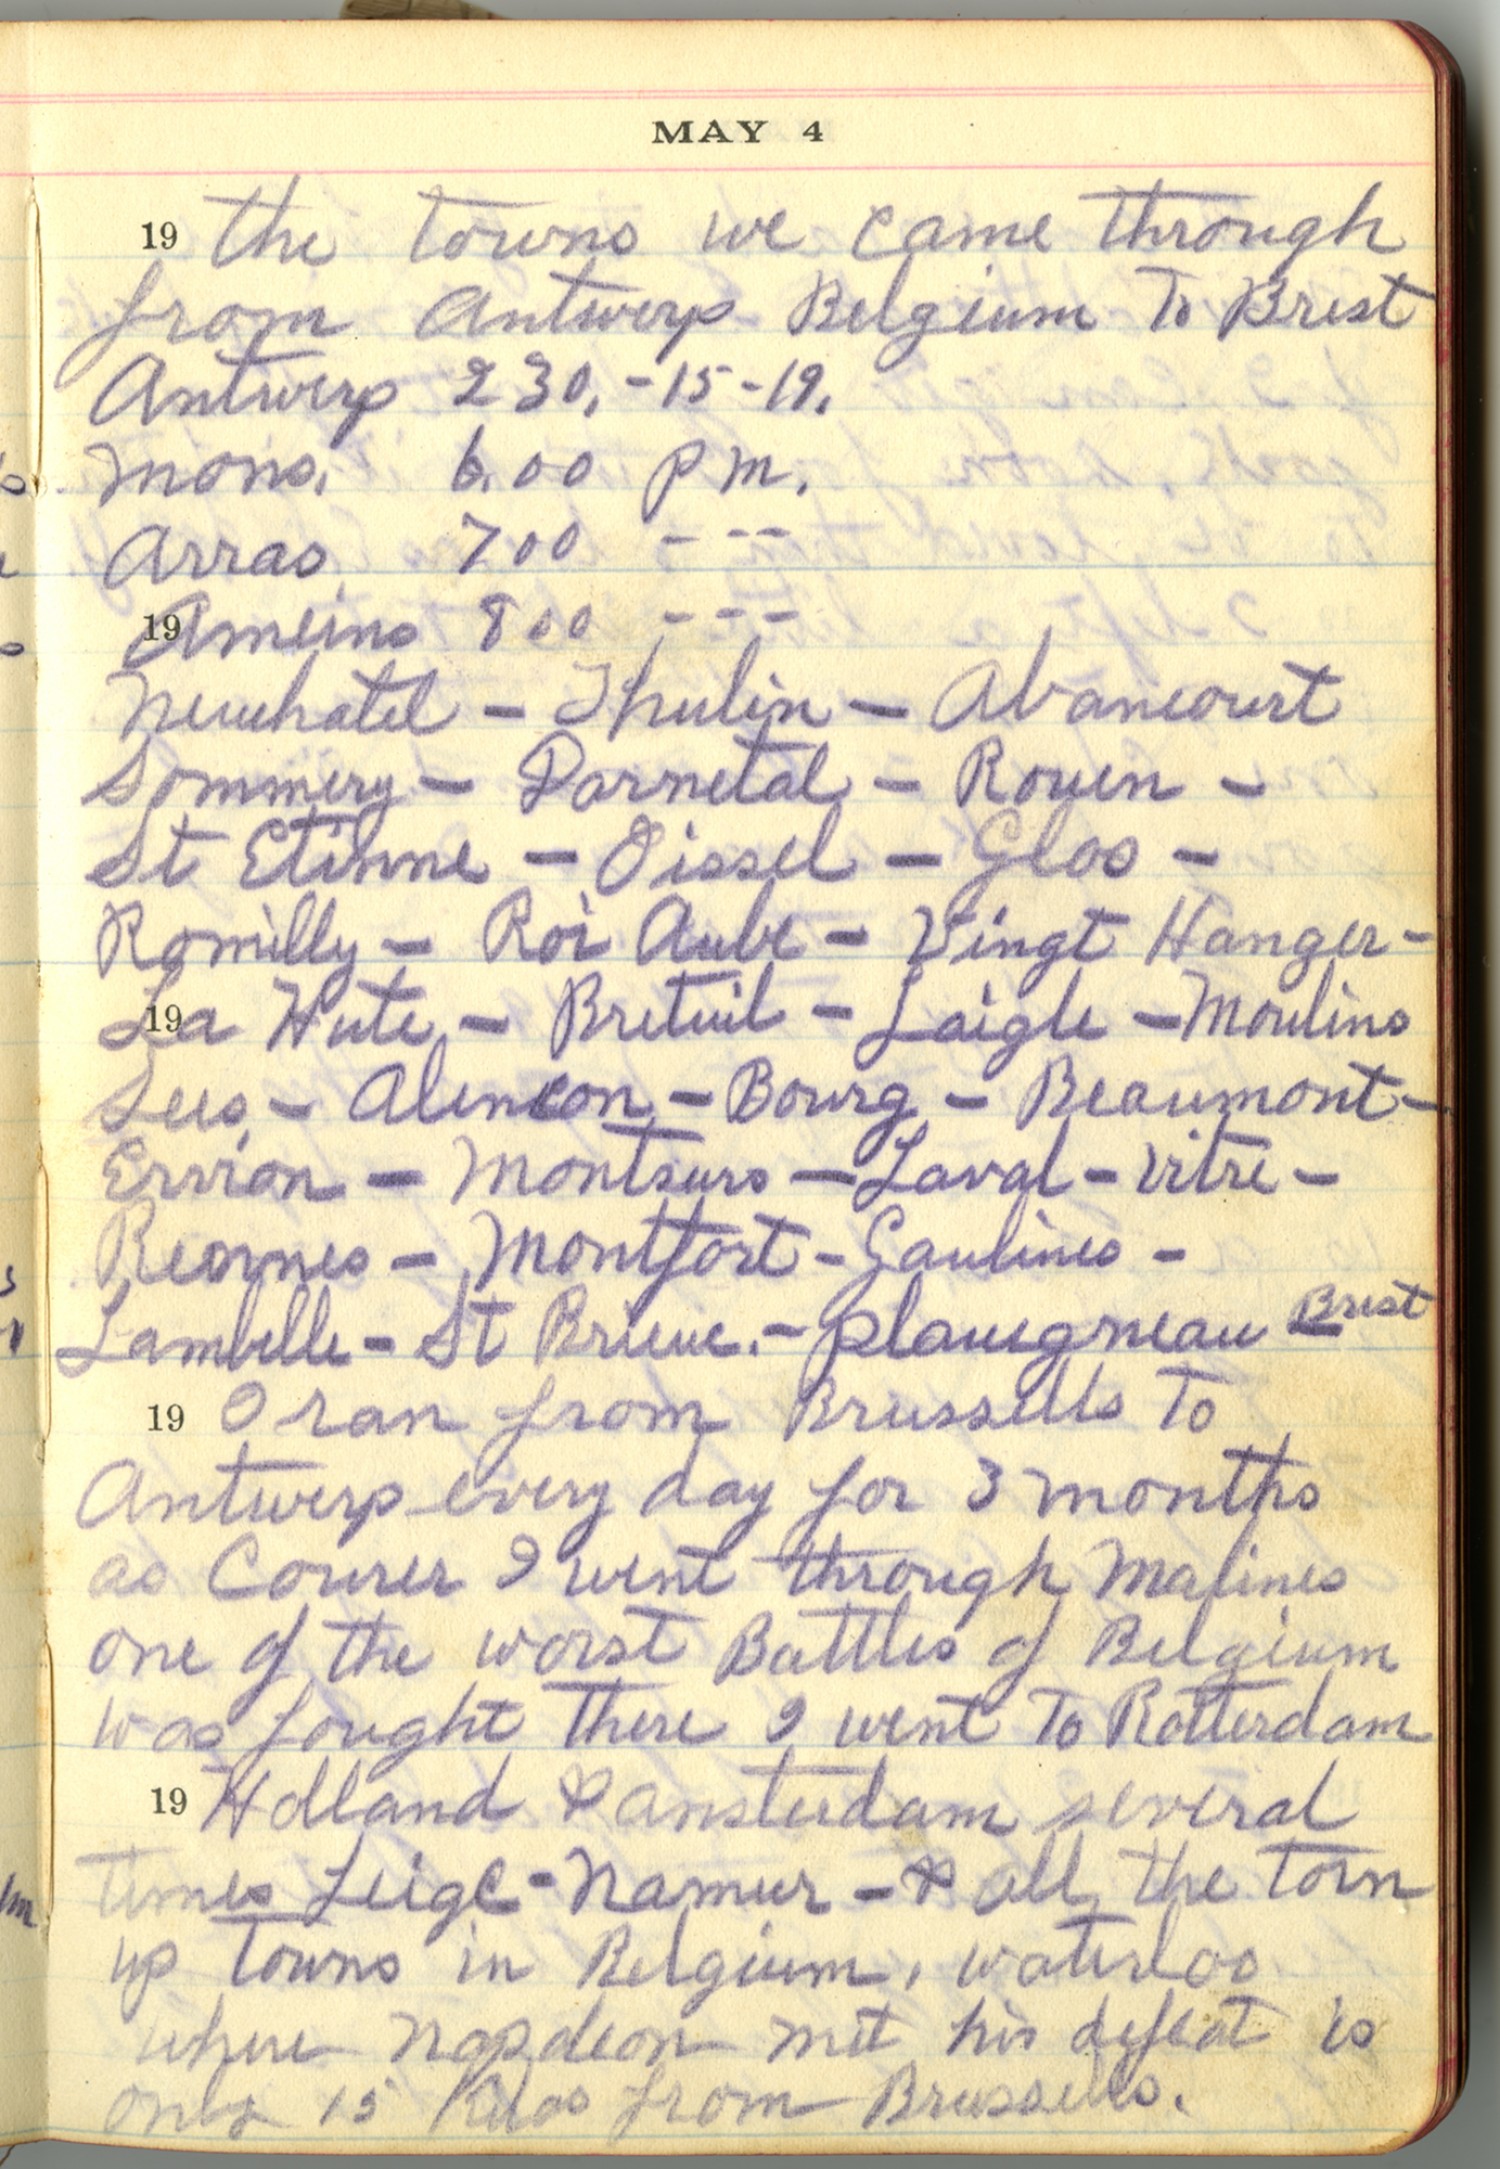 MAY 4
19 the towns we came through
from Antwerp Belgium To Brest
Antwerp 230. - 15 - 19.
Mons. 6.00 P M.
Arras 700 - - -
19 Ameins 800 - - -
Neuchatel - Thulin - Abancourt
Sommery - Darnetal - Rouen -
St Etinne - Oissel - Glos -
Romilly - Roi Aube - Vingt Hanger -
19 La Hute - Breteuil - Laigle - Moulins
Sees - Alencon - Bourg - Beaumont -
Ervron - Montsurs - Laval - Vitre -
Reonnes - Montfort - Gaulines -
Lambelle - St Brieuc. - Plouegneau Brest
19 I ran from Brussells To
Antwerp every day for 3 months
as Courer I went through Malines
one of the worst Battles of Belgium
was fought there I went To Rotterdam
19 Holland & Amsterdam several
times Leige - Namur - & all the torn
up towns in Belgium, Waterloo
where Napoleon met his defeat is
only 15 Kilos from Brussells.